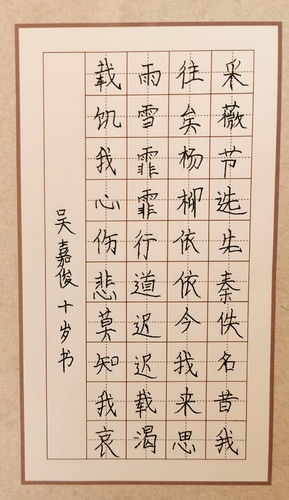 采薇节选先秦佚名昔我
往矣杨柳依依今我来思
雨雪霏霏行道迟迟载渴
载饥我心伤悲莫知我哀
吴嘉俊十岁书